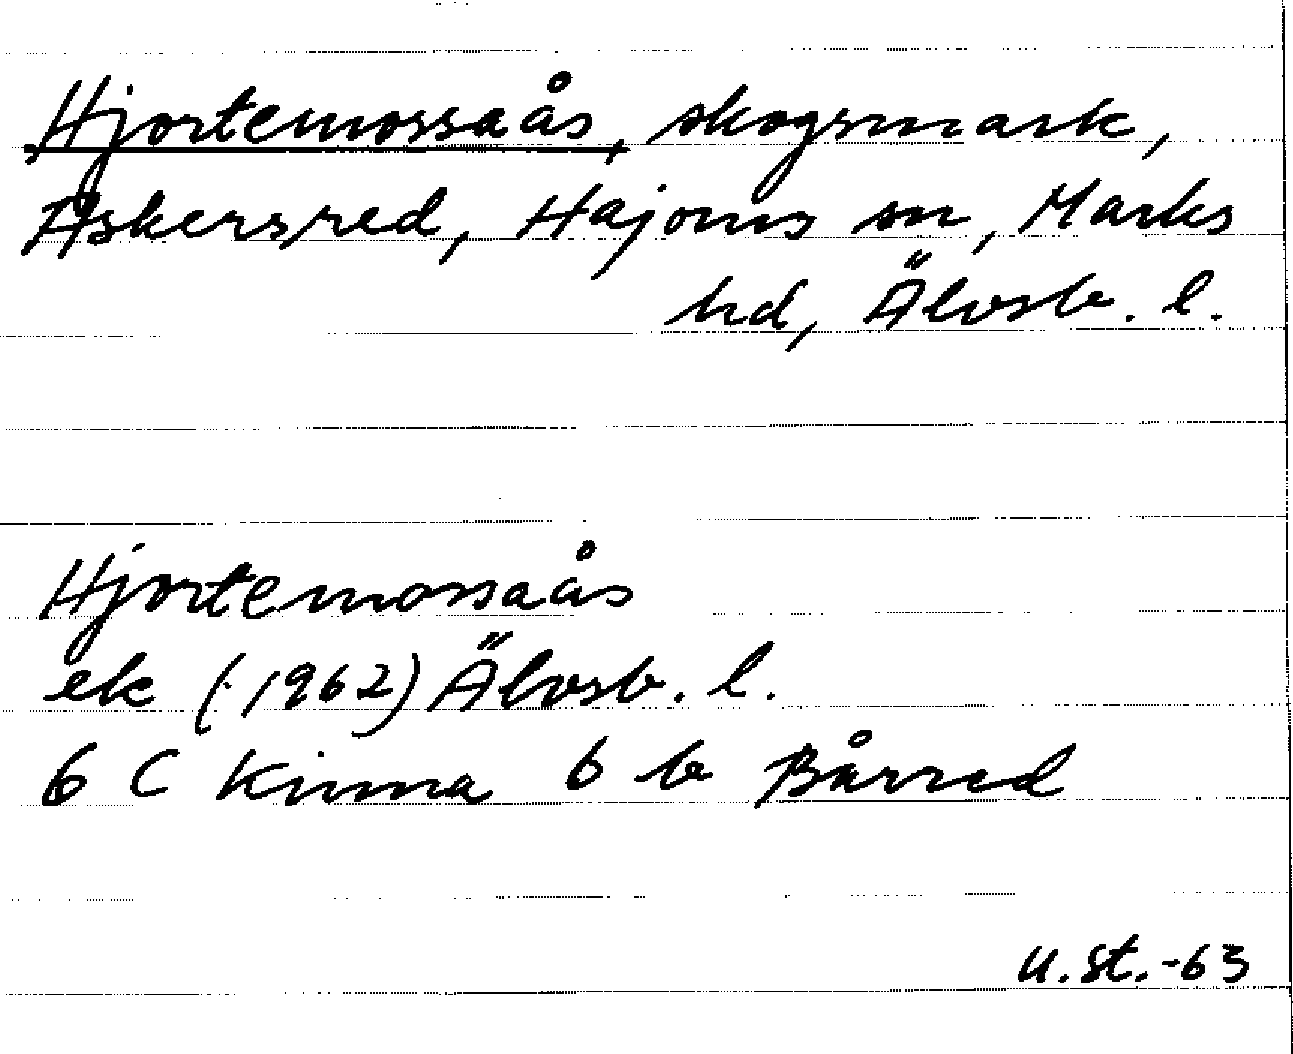 Hjortemossaås, skogsmark,
Askersred, Hajoms sn, Marks
hd, Älvsb. l.
Hjortemossaås
ek (1962) Älvsb. l.
6 C Kinna 6 b Bårred
U. St. -63